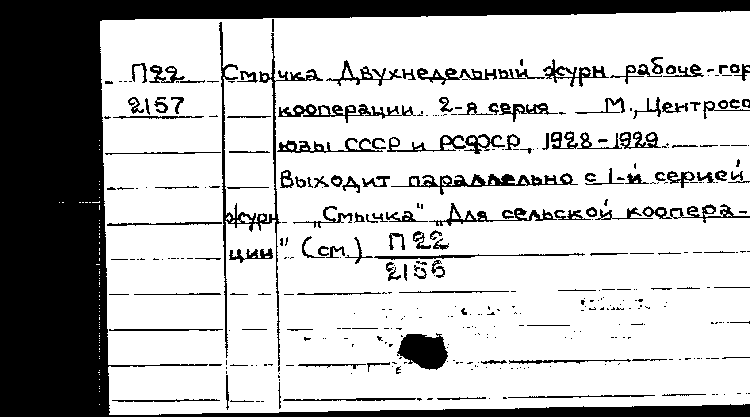 П22 Смычка Двухнедельный журн рабоче-гор
2157 кооперации. 2-я серия М., Центросо
юзы СССР и РСФСР, 1928-1929.
Выходит параллельно с 1-й серией
журн „Смычка" „Для сельской коопера-
ции" (см.) П22
2156